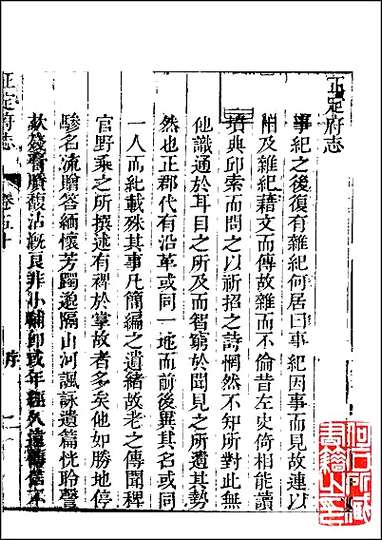 正定府志
事紀之後復有雜紀何居曰事紀因事而見故連以
相及雜紀藉文而傳故雜而不倫昔左史倚相能讀
墳典邱索而問之以祈招之詩惘然不知所對此無
他識通於耳目之所及而智窮於聞見之所遺其勢
然也正郡代有沿革或同一地而前後異其名或同
一人而紀載殊其事凡簡編之遺緒故老之傳聞稗
官野乘之所撰述有裨於掌故者多矣他如勝地停
驂名流贈答緬懷芳躅邈隔山河諷詠遺篇恍聆聲
欬殘膏賸馥沾漑良非小補即或年經久遠
正定府志 卷五十 序 一